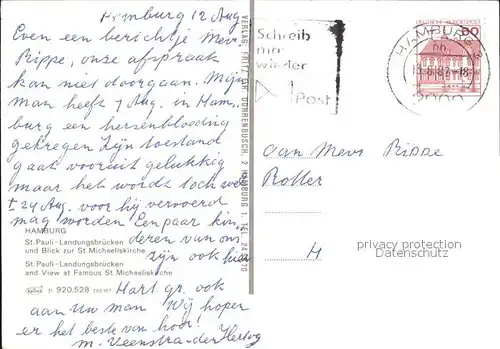 Hamburg 12 Aug
Even een berichtje Mevr
Rippe, onze afspraak
kan niet doorgaan. Mijn
man heeft 7 Aug. in Ham,
burg een hersenbloeding
gekregen Zijn toestand
gaat vooruit gelukkig
maar het wordt toch wel
± 24 Aug. voor hij vervoerd
mag worden Een paar kin,
deren van ons
zijn ook hier
Hart. gr. ook
aan Uw man Wij hopen
er het beste van hoor!
M. Veenstra-der Hertog
HAMBURG
St. Pauli - Landungsbrücken
und Blick zur St. Michaeliskirche
St. Pauli - Landungsbrücken
and View at Famous St. Michaeliskirche
21 920.528
VERLAG FRITZ DÜHRENBUSCH, 2 HAMBURG 1, TEL. 24
Schreib
mal
wieder
Post
HAMBURG
2000
80
aan Mevr Rippe
Rotter
H
privacy protection
Datenschutz